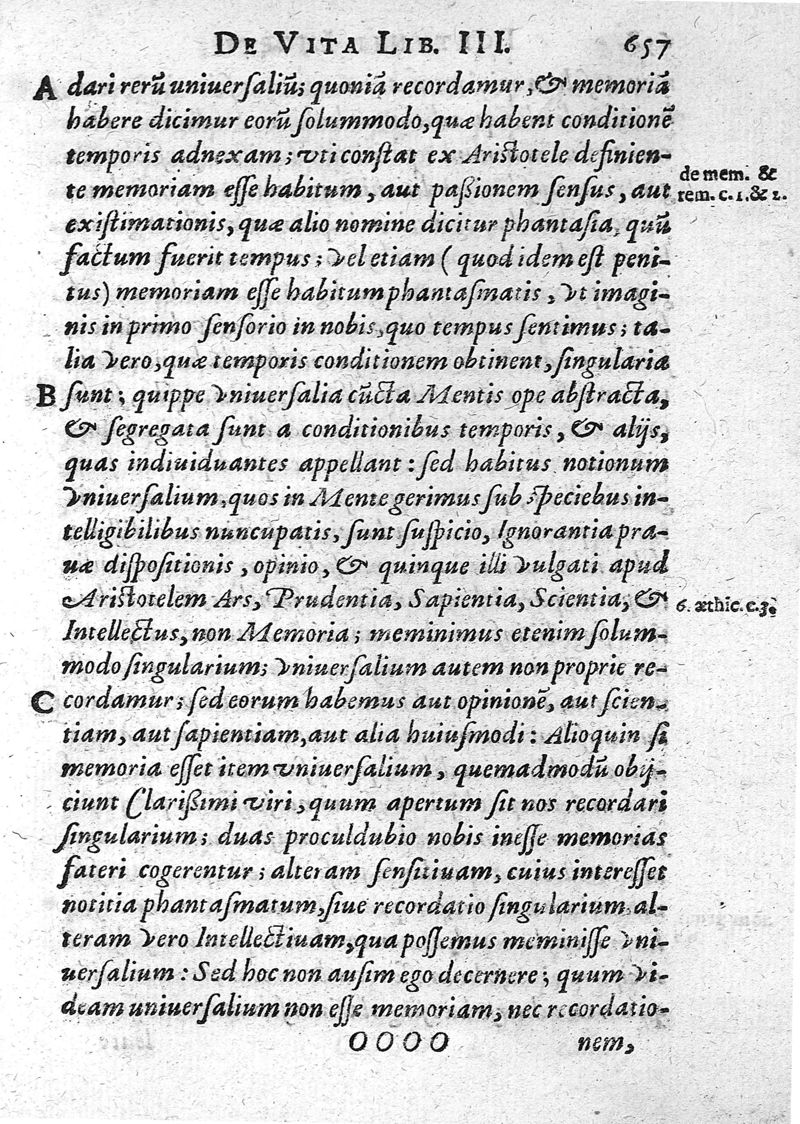 DE VITA LIB. III. 657
A dari rerū uniuersaliū; quoniā recordamur, & memoriā
habere dicimur eorū solummodo, quæ habent conditionē
temporis adnexam; vti constat ex Aristotele definien-
te memoriam esse habitum, aut paßionem sensus, aut
de mem. &
rem. c. 1. & 2.
existimationis, quæ alio nomine dicitur phantasia, quū
factum fuerit tempus; vel etiam ( quod idem est peni-
tus) memoriam esse habitum phantasmatis, vt imagi-
nis in primo sensorio in nobis, quo tempus sentimus; ta-
lia vero, quæ temporis conditionem obtinent, singularia
B sunt; quippe vniuersalia cūcta Mentis ope abstracta,
& segregata sunt a conditionibus temporis, & alijs,
quas indiuiduantes appellant: sed habitus notionum
vniuersalium, quos in Mente gerimus sub speciebus in-
telligibilibus nuncupatis, sunt suspicio, Ignorantia pra-
uæ dispositionis, opinio, & quinque illi vulgati apud
Aristotelem Ars, Prudentia, Sapientia, Scientia, &
6. æthic. c. 3.
Intellectus, non Memoria; meminimus etenim solum-
modo singularium; vniuersalium autem non proprie re-
C cordamur; sed eorum habemus aut opinionē, aut scien-
tiam, aut sapientiam, aut alia huiusmodi: Alioquin si
memoria esset item vniuersalium, quemadmodū obij-
ciunt Clarißimi viri, quum apertum sit nos recordari
singularium; duas proculdubio nobis inesse memorias
fateri cogerentur; alteram sensitiuam, cuius interesset
notitia phantasmatum, siue recordatio singularium, al-
teram vero Intellectiuam, qua possemus meminisse vni-
uersalium: Sed hoc non ausim ego decernere; quum vi-
deam uniuersalium non esse memoriam, nec recordatio-
OOOO nem,